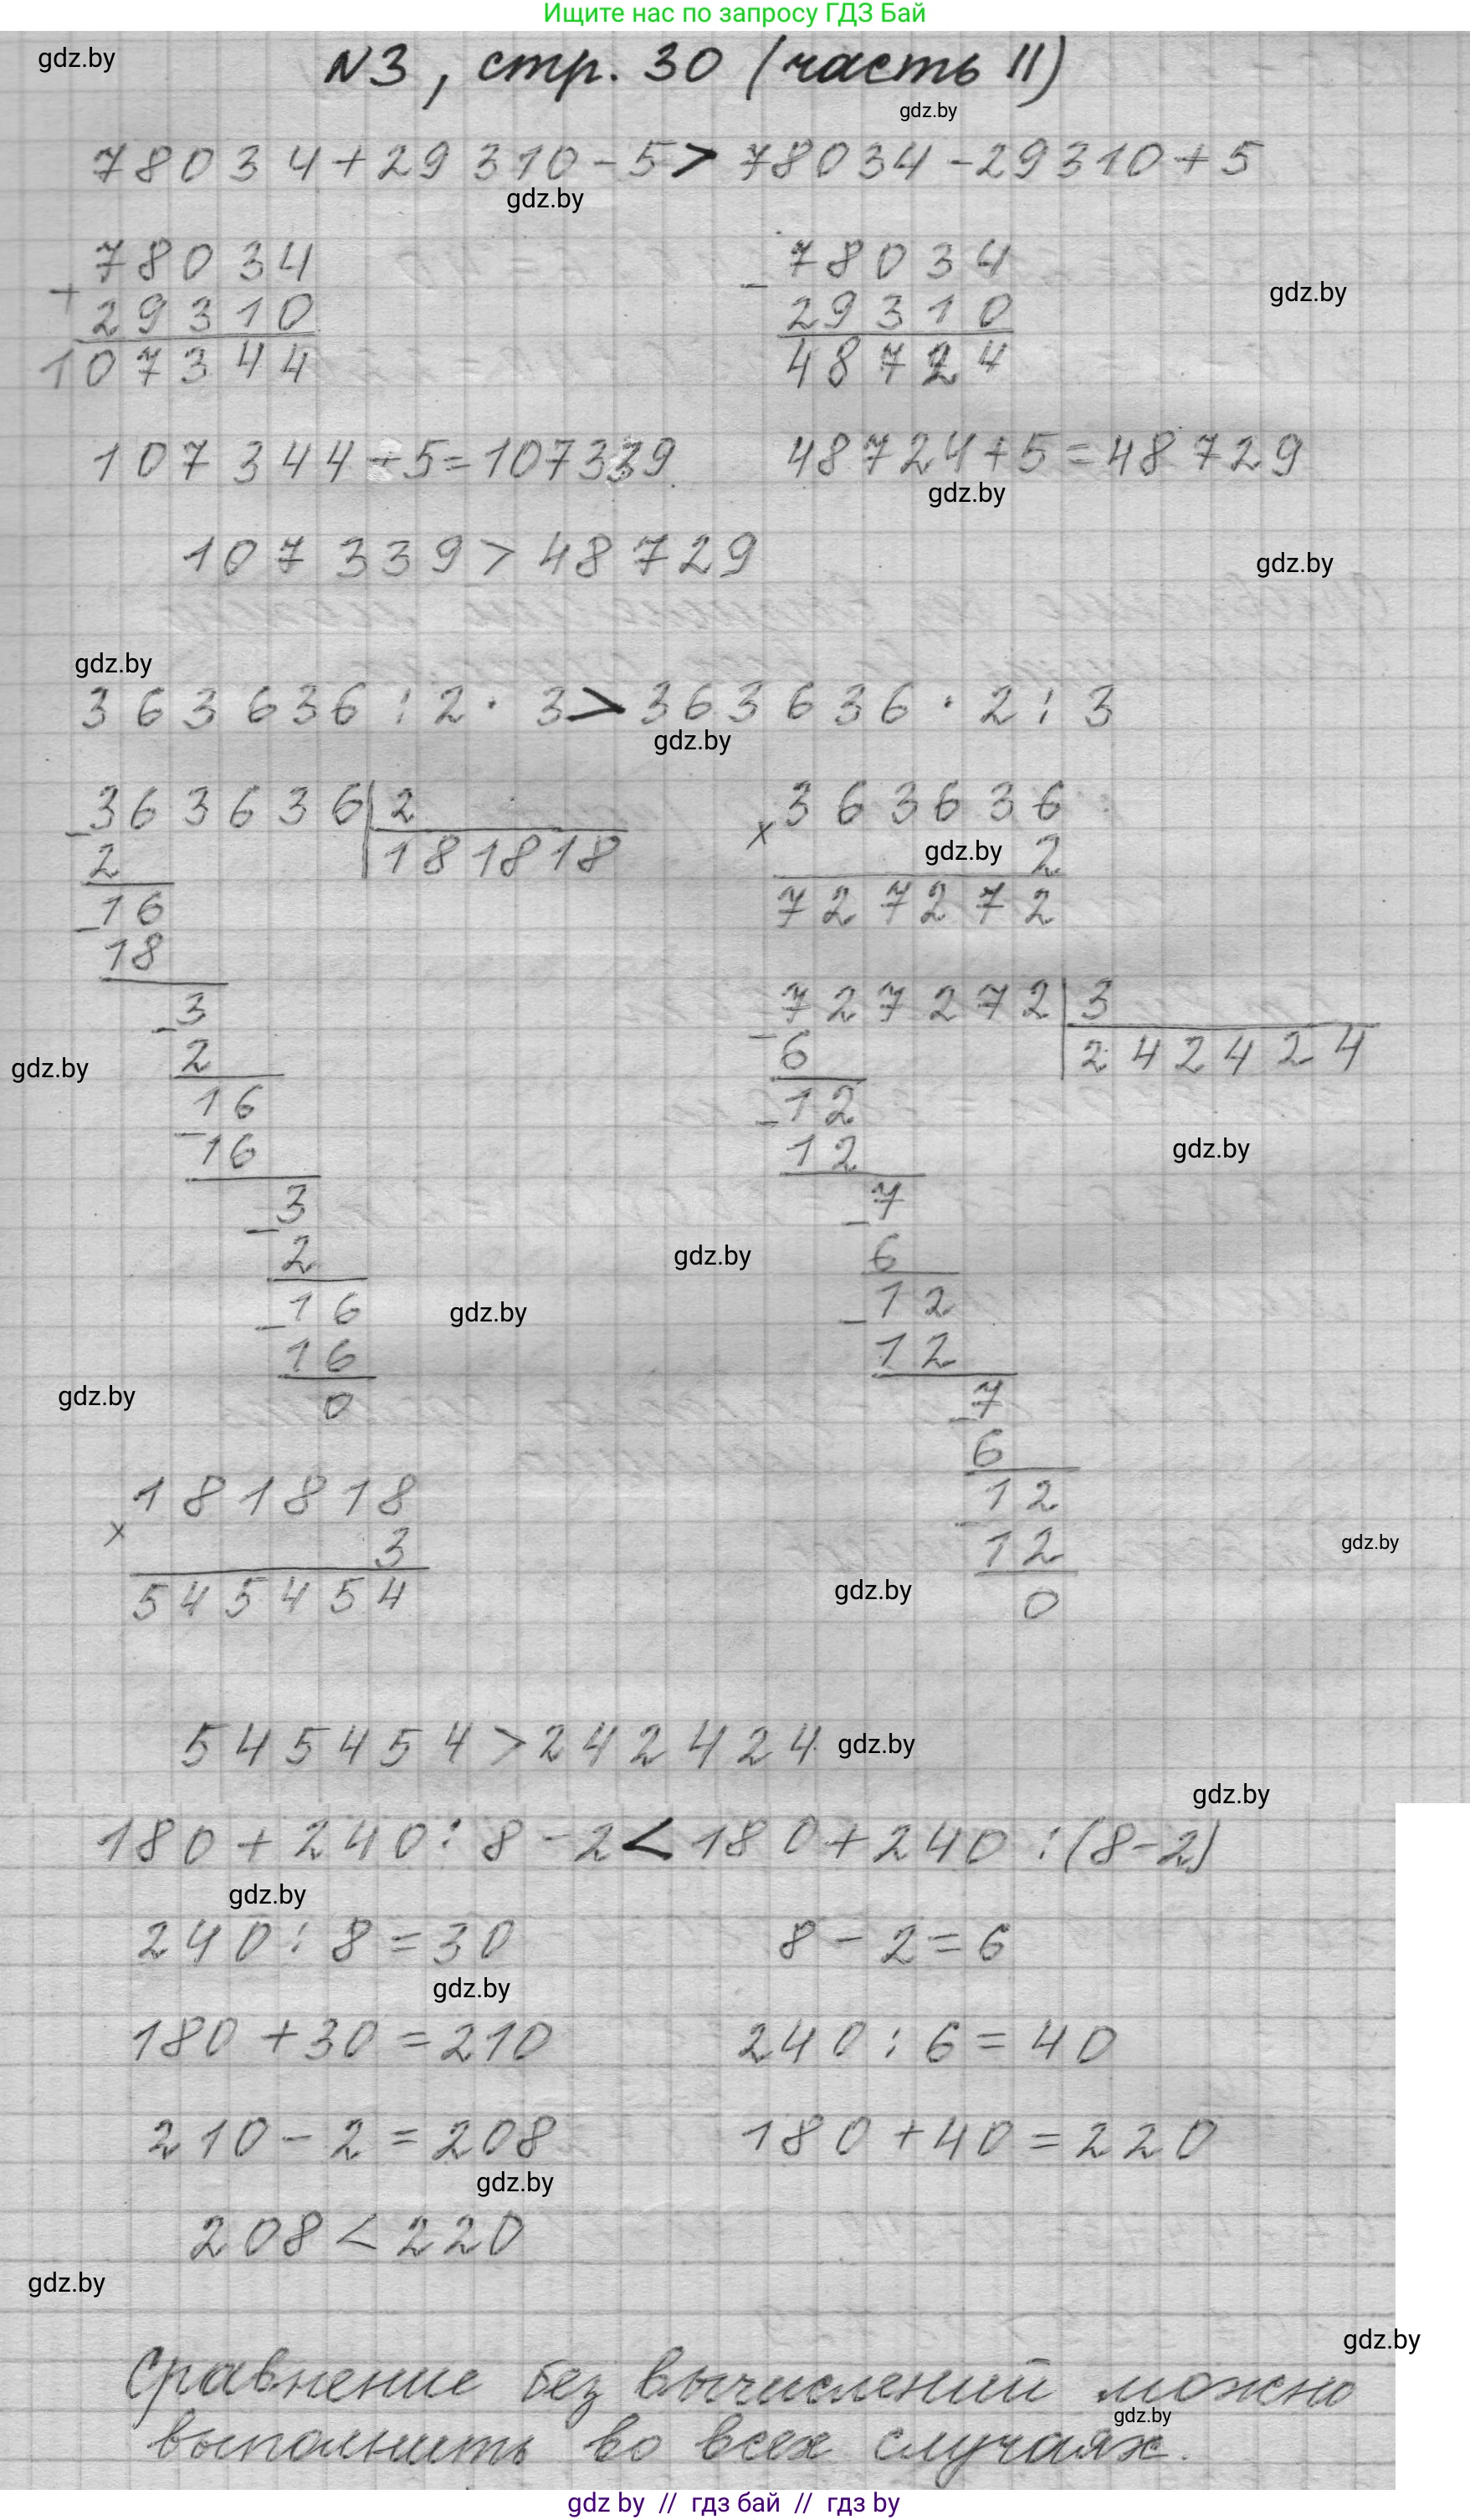 Ищите нас по запросу ГДЗ Бай
gdz.by
N3, стр. 30 (часть II)
gdz.by
78034+29310-5> 78034-29310+5
gdz.by
+ 78034
29310
107344
- 78034
29310
48724
gdz.by
107344-5=107339.
48724+5=48729
gdz.by
107339>48729
gdz.by
gdz.by
363636:2·3>363636·2:3
gdz.by
- 363636|2
181818
2
- 16
18
- 3
2
- 16
16
- 3
2
- 16
16
0
x 363636
gdz.by 2
727272
- 727272|3
242424
6
- 12
12
- 7
6
- 12
12
- 7
6
- 12
12
0
gdz.by
gdz.by
gdz.by
gdz.by
gdz.by
x 181818
3
545454
gdz.by
gdz.by
545454>242424 gdz.by
gdz.by
180+240:8-2<180+240:(8-2)
gdz.by
240:8=30 8-2=6
gdz.by
180+30=210 240:6=40
210-2=208 180+40=220
gdz.by
208<220
gdz.by
gdz.by
Сравнение без вычислений можно
gdz.by
выполнить во всех случаях.
gdz by // гдз бай // гдз by